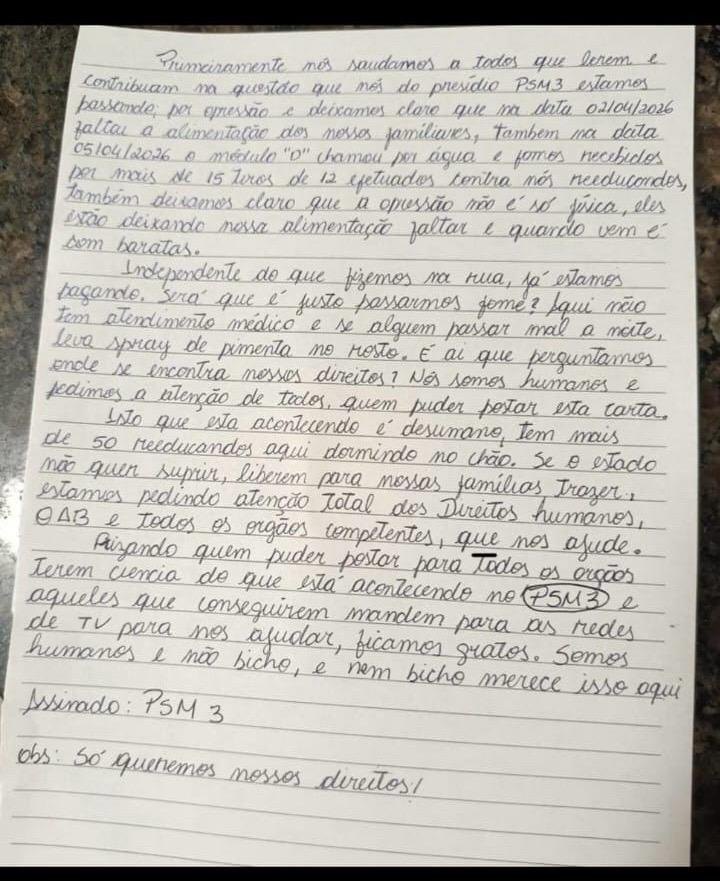 Primeiramente nós saudamos a todos que lerem e
contribuam na questão que nós do presídio PSM3 estamos
passando; por opressão e deixamos claro que na data 02/04/2026
faltou a alimentação dos nossos familiares, também na data
05/04/2026 o módulo "D" chamou por água e fomos recebidos
por mais de 15 Tiros de 12 efetuados contra nós reeducandos,
também deixamos claro que a opressão não é só física, eles
estão deixando nossa alimentação faltar e quando vem é
com baratas.
Independente do que fizemos na rua, já estamos
pagando. Será que é justo passarmos fome? Aqui não
tem atendimento médico e se alguem passar mal a noite,
leva spray de pimenta no rosto. E ai que perguntamos
onde se encontra nossos direitos? Nós somos humanos e
pedimos a atenção de todos, quem puder postar esta carta.
Isto que esta acontecendo é desumano, Tem mais
de 50 reeducandos aqui dormindo no chão. Se o estado
não quer suprir, liberem para nossas famílias Trazer,
estamos pedindo atenção Total dos Direitos humanos,
OAB e Todos os orgãos competentes, que nos ajude.
Frizando quem puder postar para Todos os orgãos
Terem ciencia do que está acontecendo no PSM3 e
aqueles que conseguirem mandem para as redes
de TV para nos ajudar, ficamos gratos. Somos
humanos e não bicho, e nem bicho merece isso aqui
Assinado: PSM 3
obs: Só queremos nossos direitos!